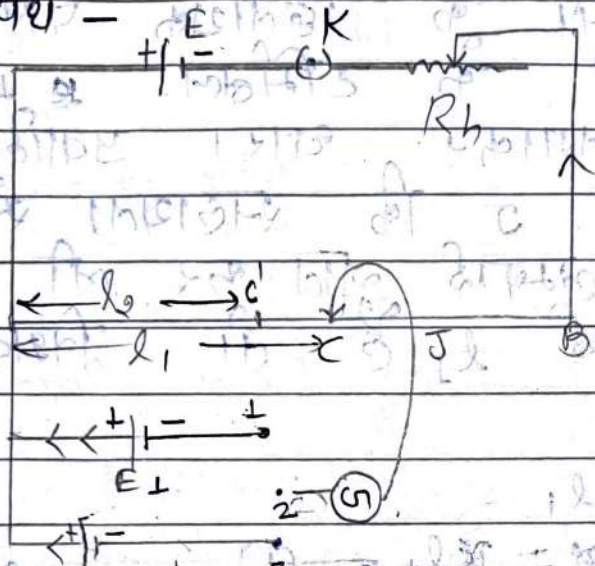 E K
+ -
Rh
l₂ C'
l₁ C J B
+ - 1
E1
2 G
+ -